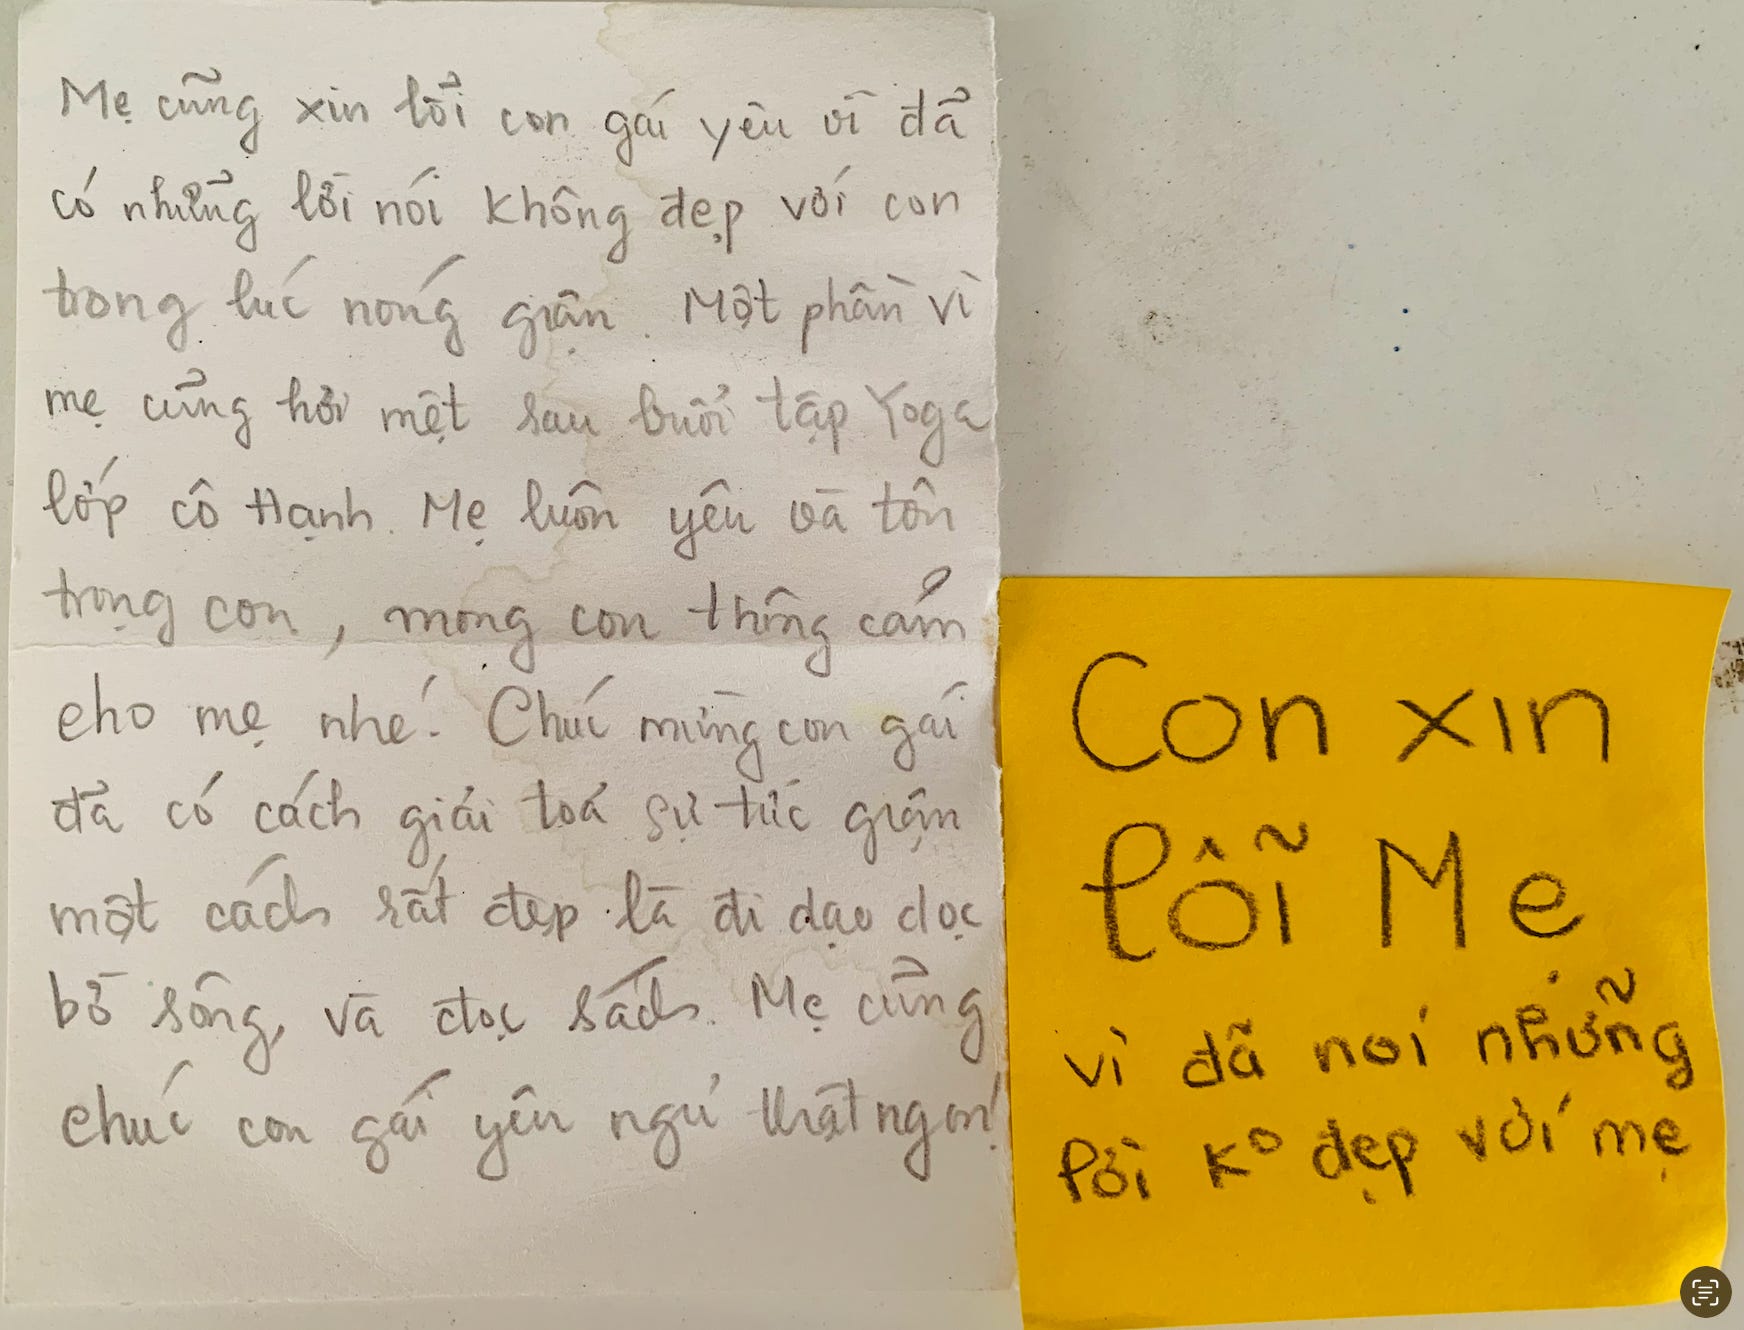 Mẹ cũng xin lỗi con gái yêu vì đã
có những lời nói không đẹp với con
trong lúc nóng giận. Một phần vì
mẹ cũng hơi mệt sau buổi tập Yoga
lớp cô Hạnh. Mẹ luôn yêu và tôn
trọng con, mong con thông cảm
cho mẹ nhé! Chúc mừng con gái
đã có cách giải toả sự tức giận
một cách rất đẹp là đi dạo dọc
bờ sông, và đọc sách. Mẹ cũng
chúc con gái yêu ngủ thật ngon!
Con xin
lỗi Mẹ
vì đã nói những
lời k° đẹp với mẹ